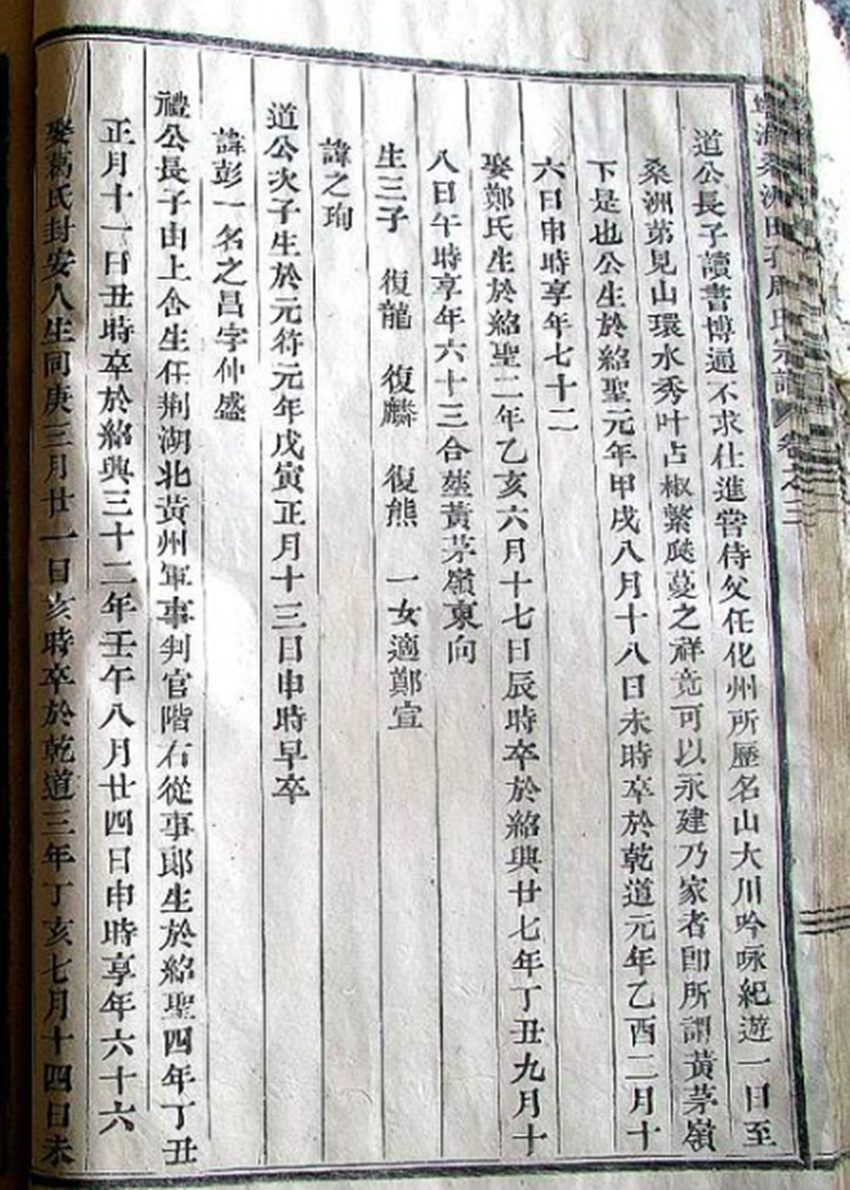 寧海桑洲田孔周氏宗譜 卷之三
道公長子讀書博通不求仕進嘗侍父任化州所歷名山大川吟咏紀遊一日至
桑洲第見山環水秀叶占椒繁瓞蔓之祥竟可以永建乃家者卽所謂黃茅嶺
下是也公生於紹聖元年甲戌八月十八日未時卒於乾道元年乙酉二月十
六日申時享年七十二
娶鄭氏生於紹聖二年乙亥六月十七日辰時卒於紹興廿七年丁丑九月十
八日午時享年六十三合塟黃茅嶺東向
生三子 復龍 復麟 復熊 一女適鄭宣
諱之珣
道公次子生於元符元年戊寅正月十三日申時早卒
諱彭一名之昌字仲盛
禮公長子由上舍生任荆湖北黃州軍事判官階右從事郎生於紹聖四年丁丑
正月十一日丑時卒於紹興三十二年壬午八月廿四日申時享年六十六
娶葛氏封安人生同庚三月廿一日亥時卒於乾道三年丁亥七月十四日未